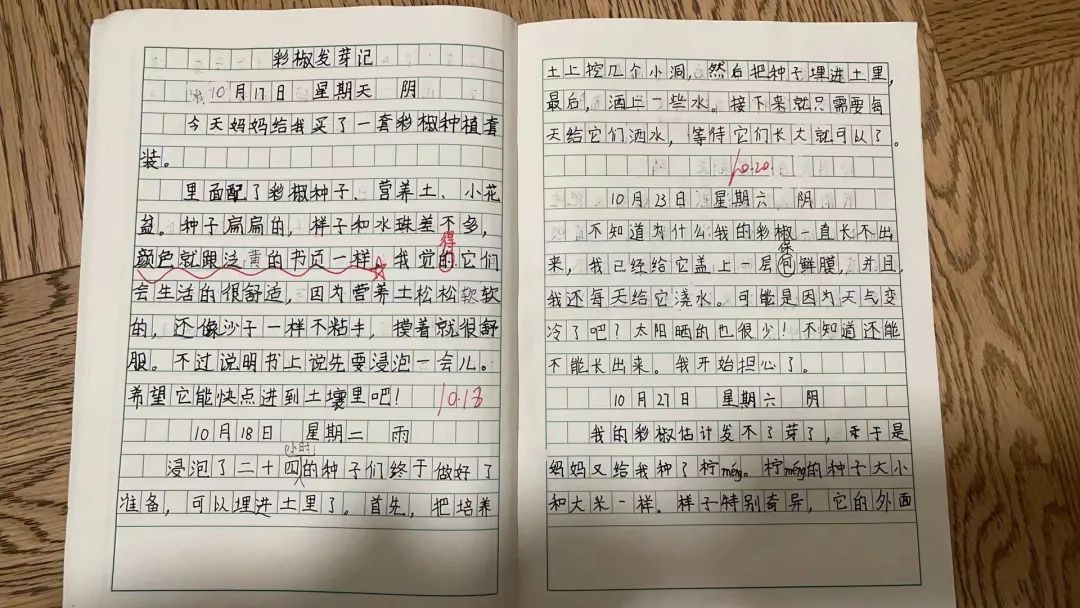 彩椒发芽记
10月17日 星期天 阴
今天妈妈给我买了一套彩椒种植套
装。
里面配了彩椒种子、营养土、小花
盆。种子扁扁的，样子和水珠差不多，
颜色就跟泛黄的书页一样。我觉的它们
得
会生活的很舒适，因为营养土松松软软
的，还像沙子一样不粘手，摸着就很舒
服。不过说明书上说先要浸泡一会儿。
希望它能快点进到土壤里吧！ 10.18
10月18日 星期二 雨
小时
浸泡了二十四的种子们终于做好了
准备，可以埋进土里了。首先，把培养
土上挖几个小洞，然后把种子埋进土里，
最后，洒上一些水。接下来就只需要每
天给它们洒水，等待它们长大就可以了。
10.20
10月23日 星期六 阴
不知道为什么我的彩椒一直长不出
保
来，我已经给它盖上一层何鲜膜，并且，
我还每天给它浇水。可能是因为天气变
冷了吧？太阳晒的也很少！不知道还能
不能长出来。我开始担心了。
10月27日 星期六 阴
我的彩椒估计发不了芽了，于是
妈妈又给我种了柠méng。柠méng的种子大小
和大米一样。样子特别奇异，它的外面